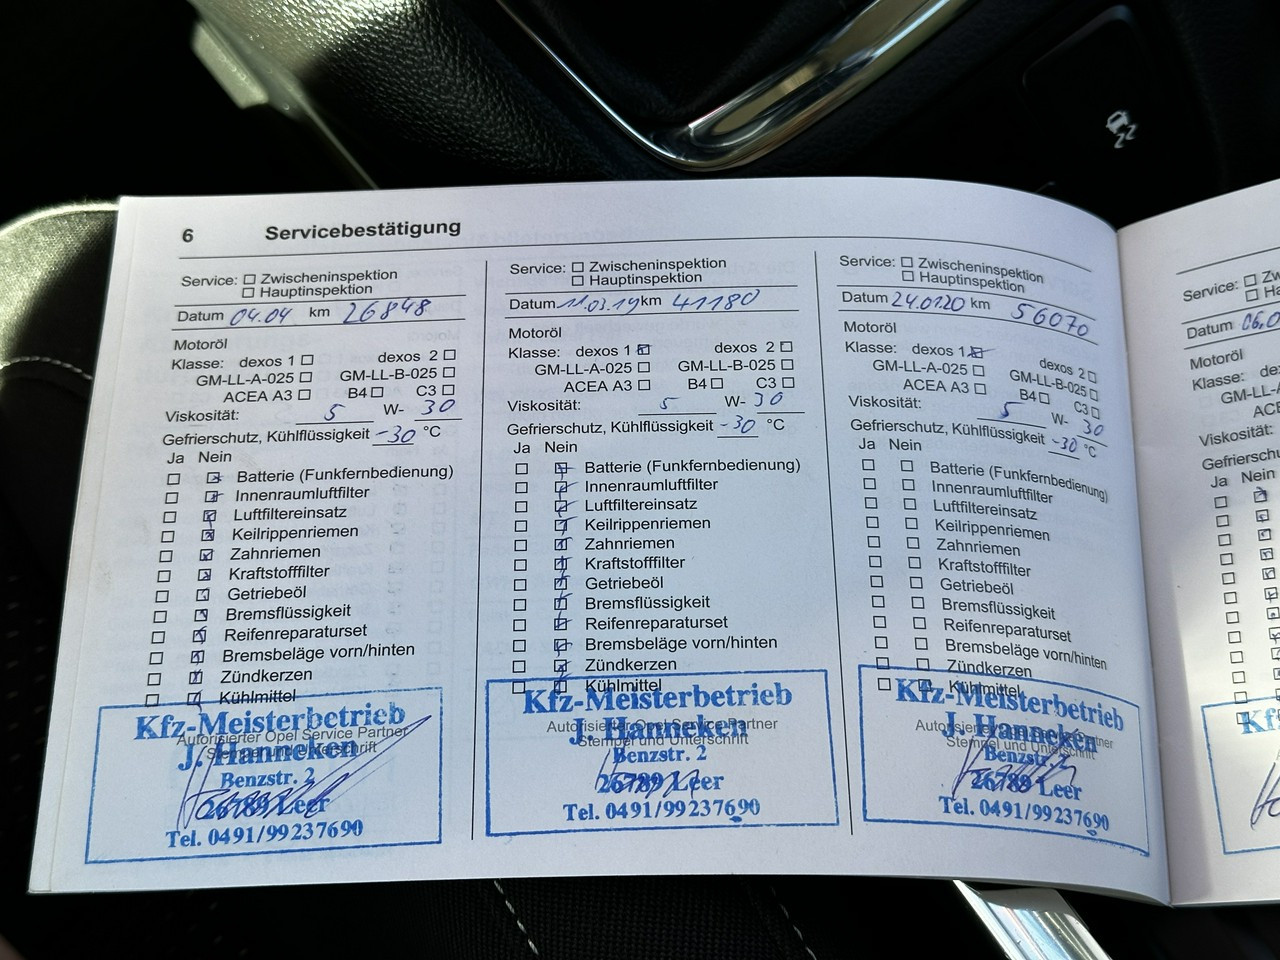 6 Servicebestätigung
Service: Zwischeninspektion
Hauptinspektion
Datum 04.04 km 26848
Motoröl
Klasse: dexos 1 dexos 2
GM-LL-A-025 GM-LL-B-025
ACEA A3 B4 C3
Viskosität: 5 W- 30
Gefrierschutz, Kühlflüssigkeit -30 °C
Ja Nein
Batterie (Funkfernbedienung)
Innenraumluftfilter
Luftfiltereinsatz
Keilrippenriemen
Zahnriemen
Kraftstofffilter
Getriebeöl
Bremsflüssigkeit
Reifenreparaturset
Bremsbeläge vorn/hinten
Zündkerzen
Kühlmittel
Kfz-Meisterbetrieb
Autorisierter Opel Service Partner
J. Hanneken
Stempel und Unterschrift
Benzstr. 2
26789 Leer
Tel. 0491/99237690
Service: Zwischeninspektion
Hauptinspektion
Datum 11.03.19 km 41180
Motoröl
Klasse: dexos 1 dexos 2
GM-LL-A-025 GM-LL-B-025
ACEA A3 B4 C3
Viskosität: 5 W- 30
Gefrierschutz, Kühlflüssigkeit -30 °C
Ja Nein
Batterie (Funkfernbedienung)
Innenraumluftfilter
Luftfiltereinsatz
Keilrippenriemen
Zahnriemen
Kraftstofffilter
Getriebeöl
Bremsflüssigkeit
Reifenreparaturset
Bremsbeläge vorn/hinten
Zündkerzen
Kühlmittel
Kfz-Meisterbetrieb
Autorisierter Opel Service Partner
J. Hanneken
Stempel und Unterschrift
Benzstr. 2
26789 Leer
Tel. 0491/99237690
Service: Zwischeninspektion
Hauptinspektion
Datum 24.01.20 km 56070
Motoröl
Klasse: dexos 1 dexos 2
GM-LL-A-025 GM-LL-B-025
ACEA A3 B4 C3
Viskosität: 5 W- 30
Gefrierschutz, Kühlflüssigkeit -30 °C
Ja Nein
Batterie (Funkfernbedienung)
Innenraumluftfilter
Luftfiltereinsatz
Keilrippenriemen
Zahnriemen
Kraftstofffilter
Getriebeöl
Bremsflüssigkeit
Reifenreparaturset
Bremsbeläge vorn/hinten
Zündkerzen
Kühlmittel
Kfz-Meisterbetrieb
Autorisierter Opel Service Partner
J. Hanneken
Stempel und Unterschrift
Benzstr. 2
26789 Leer
Tel. 0491/99237690
Service:
Datum
Motoröl
Klasse:
Viskosität:
Ja Nein